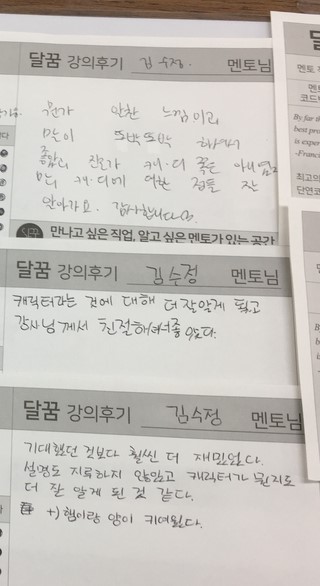 달꿈 강의후기 김수정. 멘토님
뭔가 알찬 느낌이고
많이 또박또박 하셔서
좋았고 진로가 캐·디 쪽은 아니였지만
캐·디에 대한 점들 잘
알아가요. 감사합니다
만나고 싶은 직업, 알고 싶은 멘토가 있는 공간
달꿈 강의후기 김수정 멘토님
캐릭터라는 것에 대해 더 잘알게 됐고
강사님께서 친절해서 좋았다.
달꿈 강의후기 김수정 멘토님
기대했던 것보다 훨씬 더 재밌었다.
설명도 지루하지 않았고 캐릭터가 뭔지도
더 잘 알게 된 것 같다.
+) 햄이랑 양이 귀여웠다.
멘토
코드
By far th
best pro
is exper
-Franc
최고의
단연코